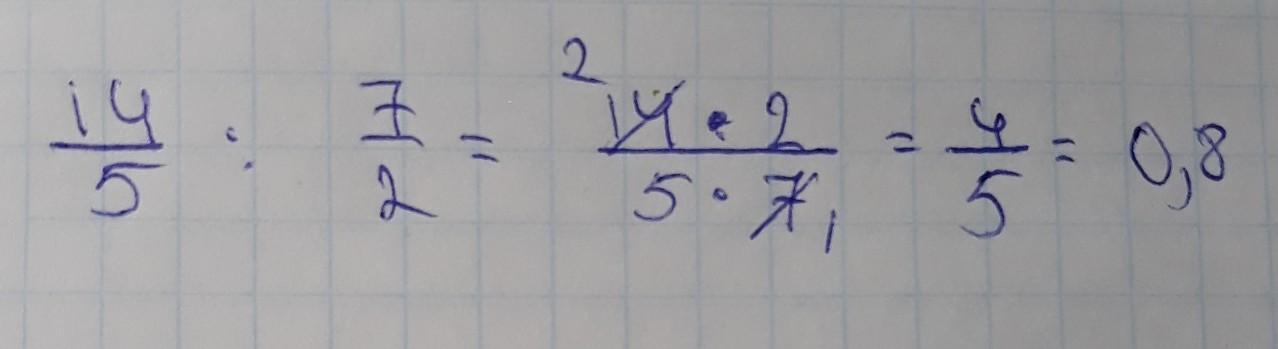 14/5 : 7/2 = ²14 · 2 / 5 · 7₁ = 4/5 = 0,8